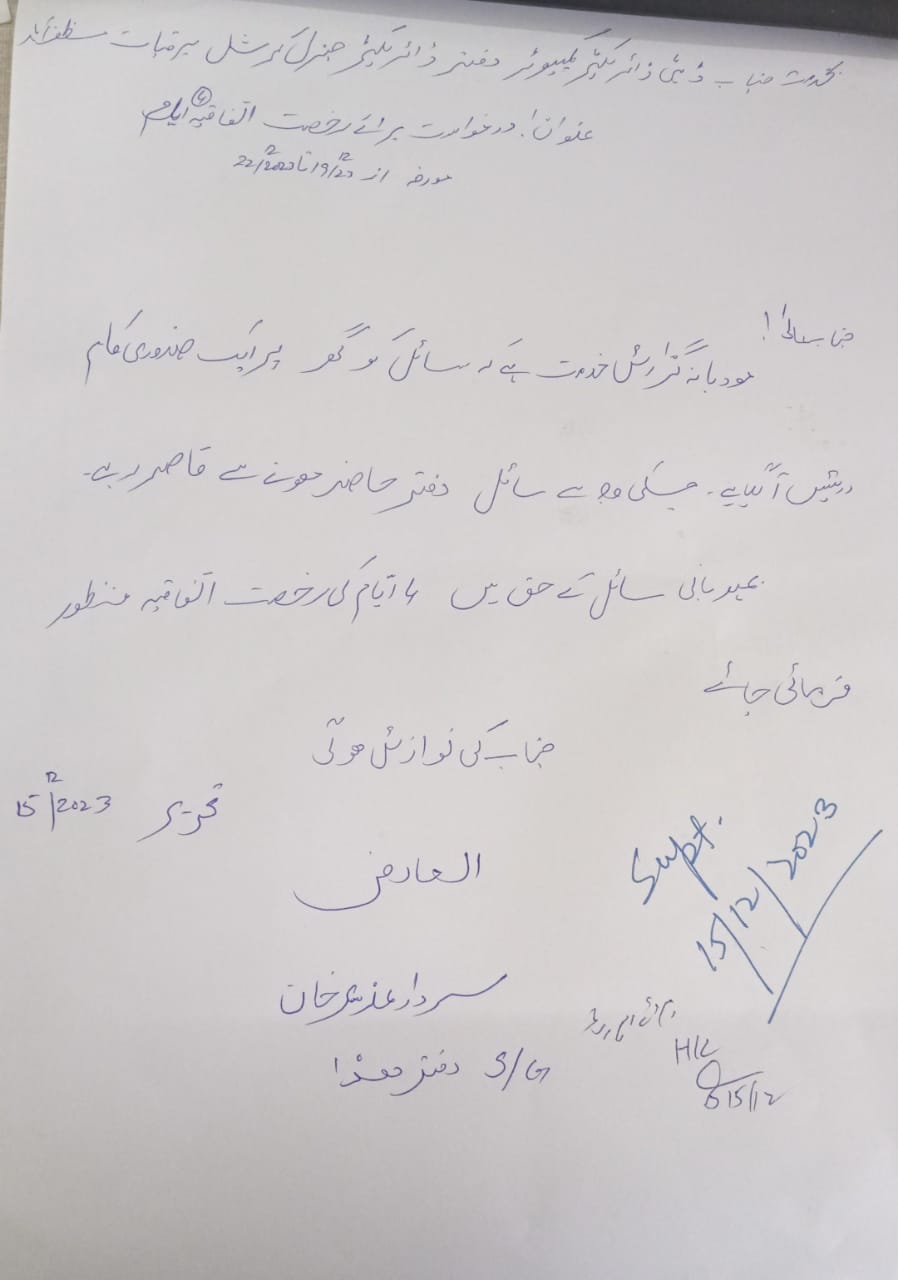 بخدمت جناب ڈپٹی ڈائریکٹر کمپیوٹر دفتر ڈائریکٹر جنرل کمرشل برقیات مظفرآباد
عنوان: درخواست برائے رخصت اتفاقیہ ایام (4)
مورخہ از 19/12/23 تا 22/12/2023
جناب عالی!
مودبانہ گزارش خدمت ہے کہ سائل کو گھر پر ایک ضروری کام
درپیش آ گیا ہے۔ جسکی وجہ سے سائل دفتر حاضر ہونے سے قاصر ہے۔
بمہربانی سائل کے حق میں 4 ایام کی رخصت اتفاقیہ منظور
فرمائی جائے
جناب کی نوازش ہوگی
تحریر 15/12/2023
العارض
سردار خان
S/G دفتر ھذا
Supt.
15/12/2023
H/C
15/12